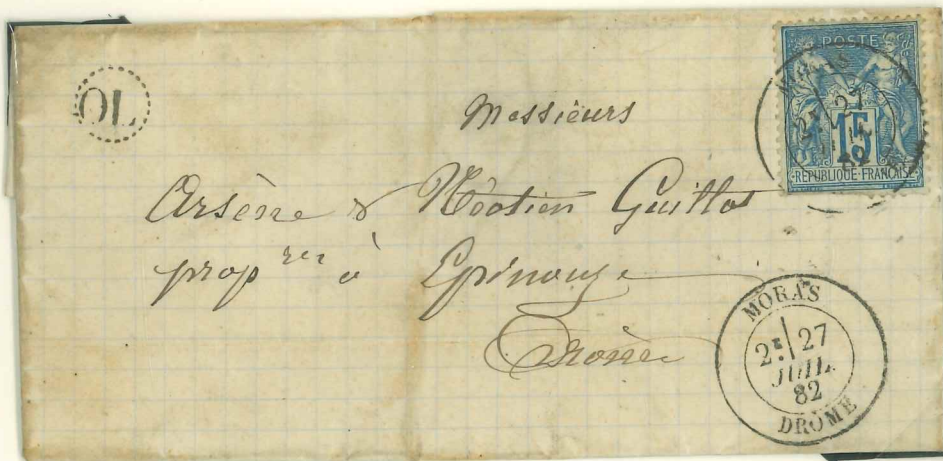 OL
POSTE
15
REPUBLIQUE FRANÇAISE
MORAS
2E 27
82
Messieurs
Arsène & Néotien Guillot
prop res à Epinouze
Drôme
MORAS
2E 27
JUIL.
82
DROME